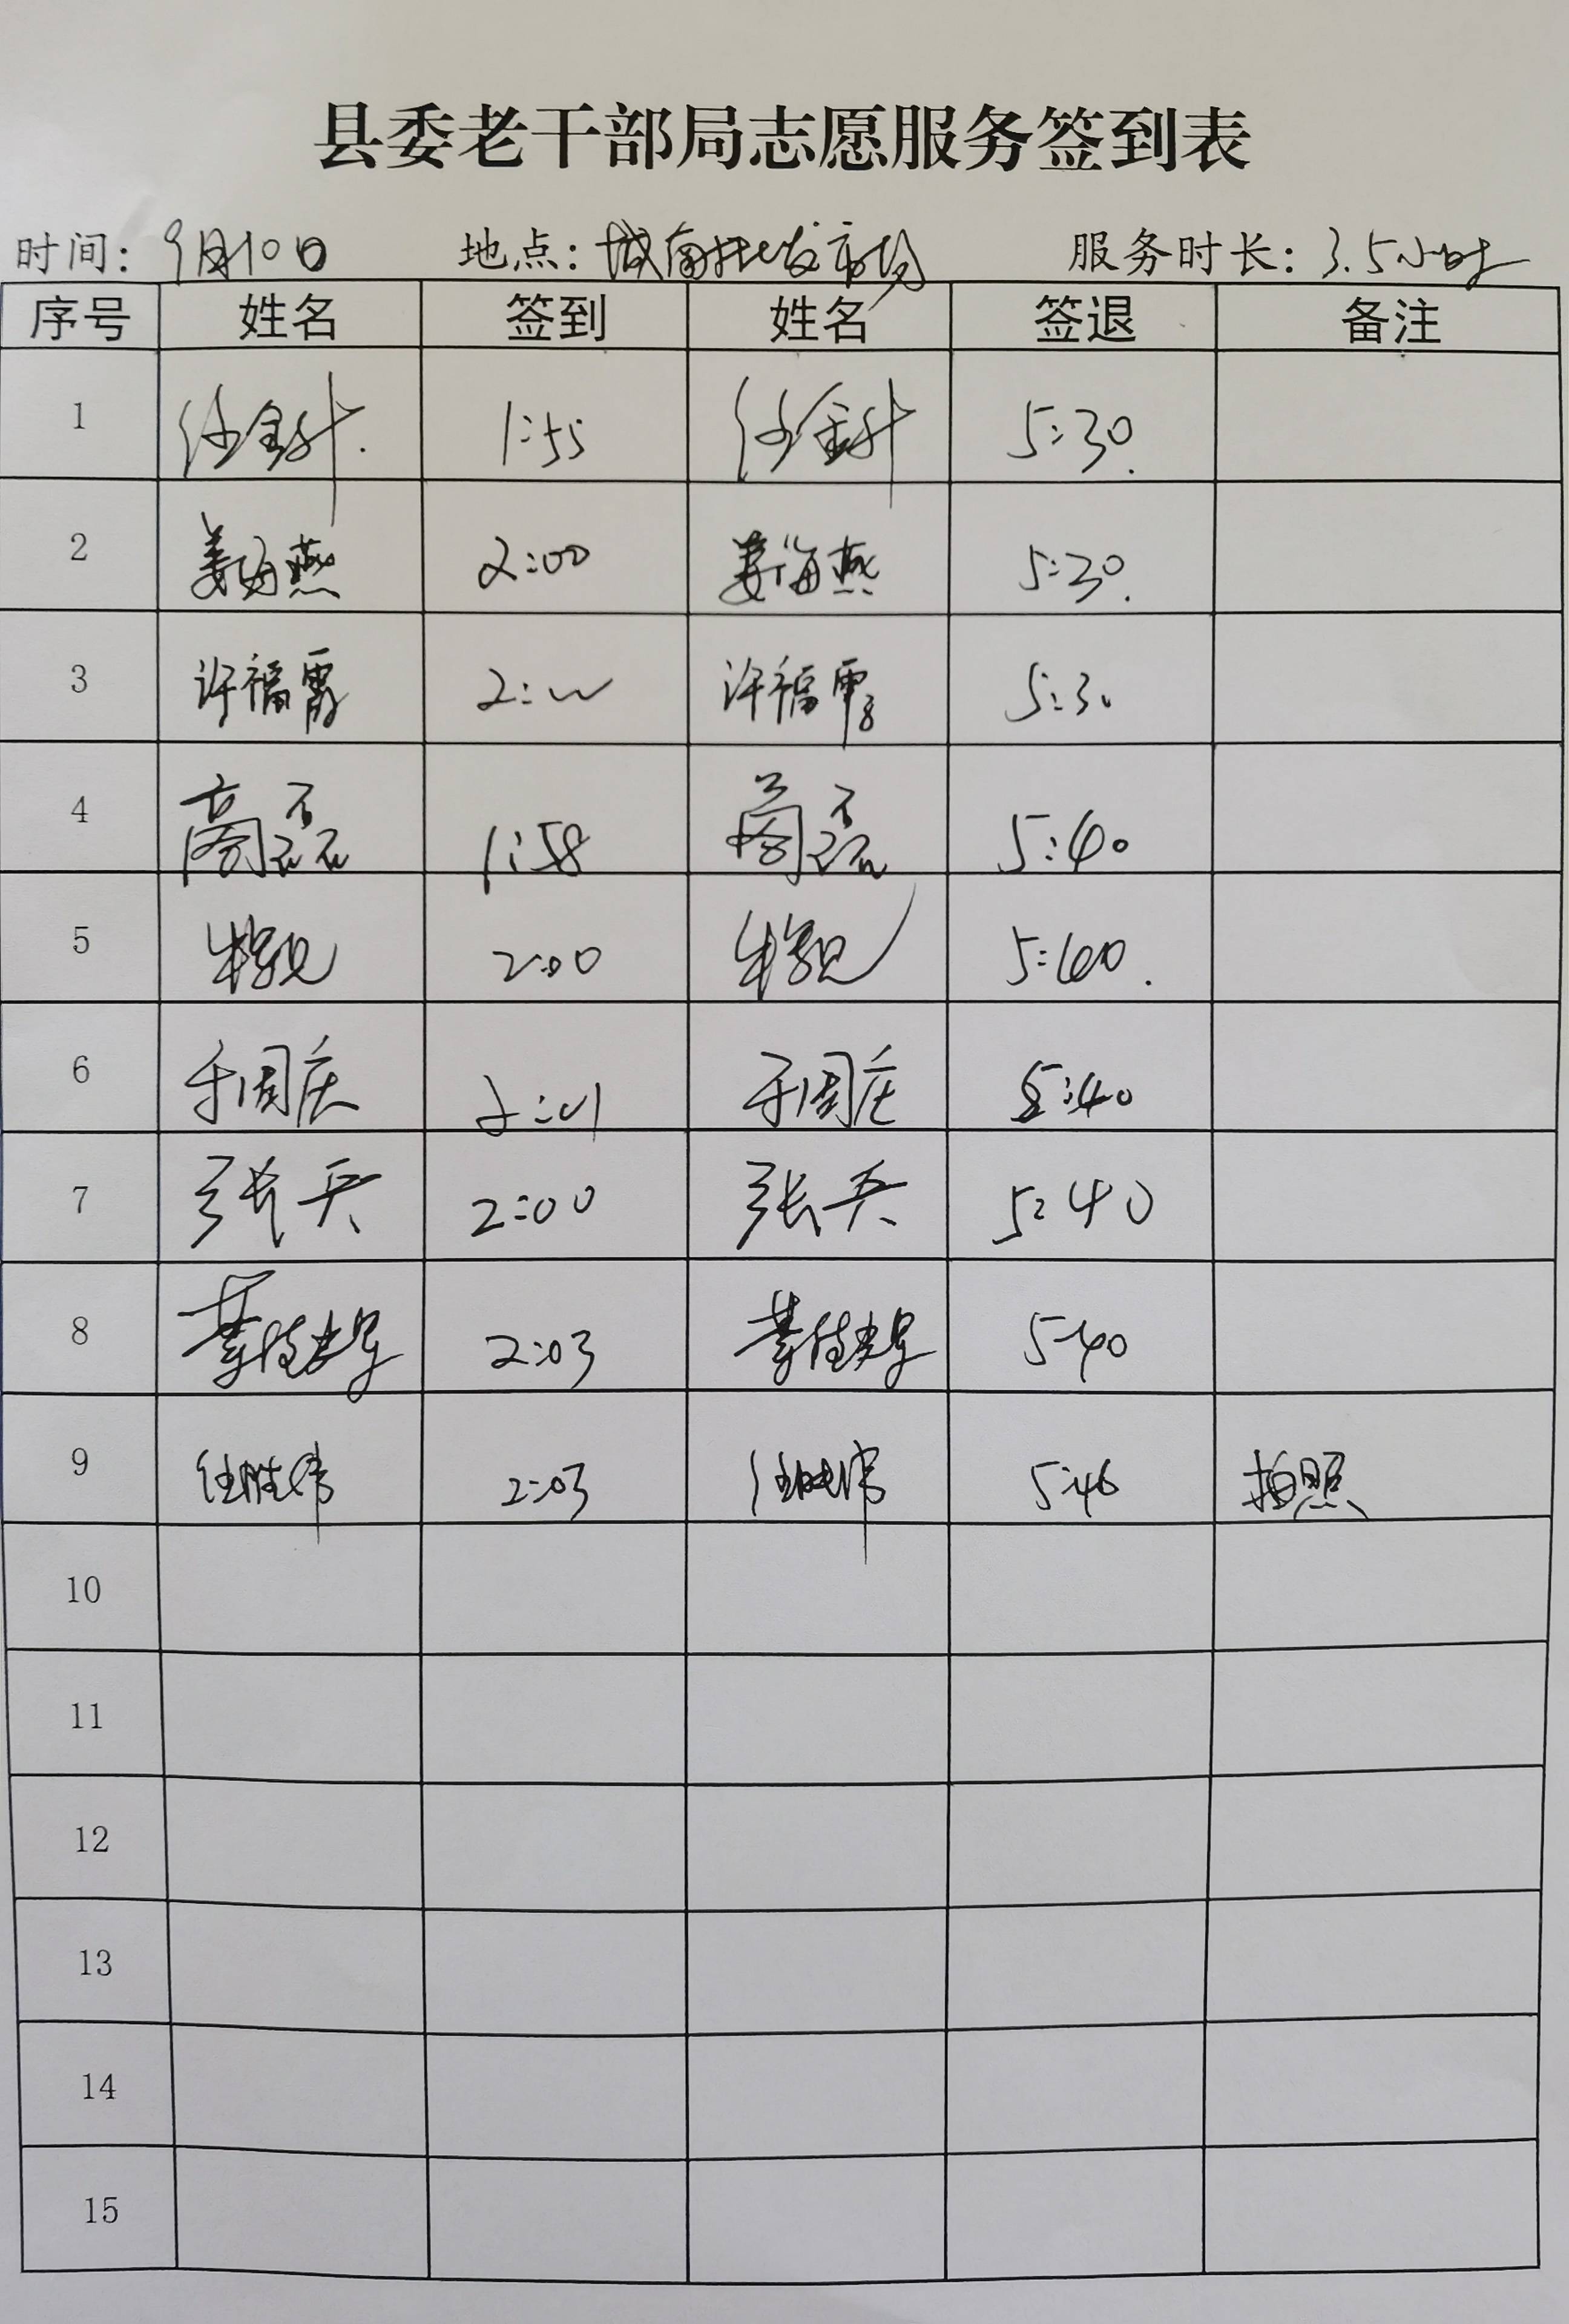 县委老干部局志愿服务签到表
时间: 9月10日 地点: 城南批发市场 服务时长: 3.5小时
序号 姓名 签到 姓名 签退 备注
1 1:55 5:30.
2 姜海燕 2:00 姜海燕 5:30.
3 许福霞 2:00 许福霞 5:30
4 高磊 1:58 高磊 5:40
5 2:00 5:40.
6 于周庆 2:01 于周庆 5:40
7 张兵 2:00 张兵 5:40
8 2:03 5:40
9 任胜伟 2:03 任胜伟 5:46 拍照
10
11
12
13
14
15